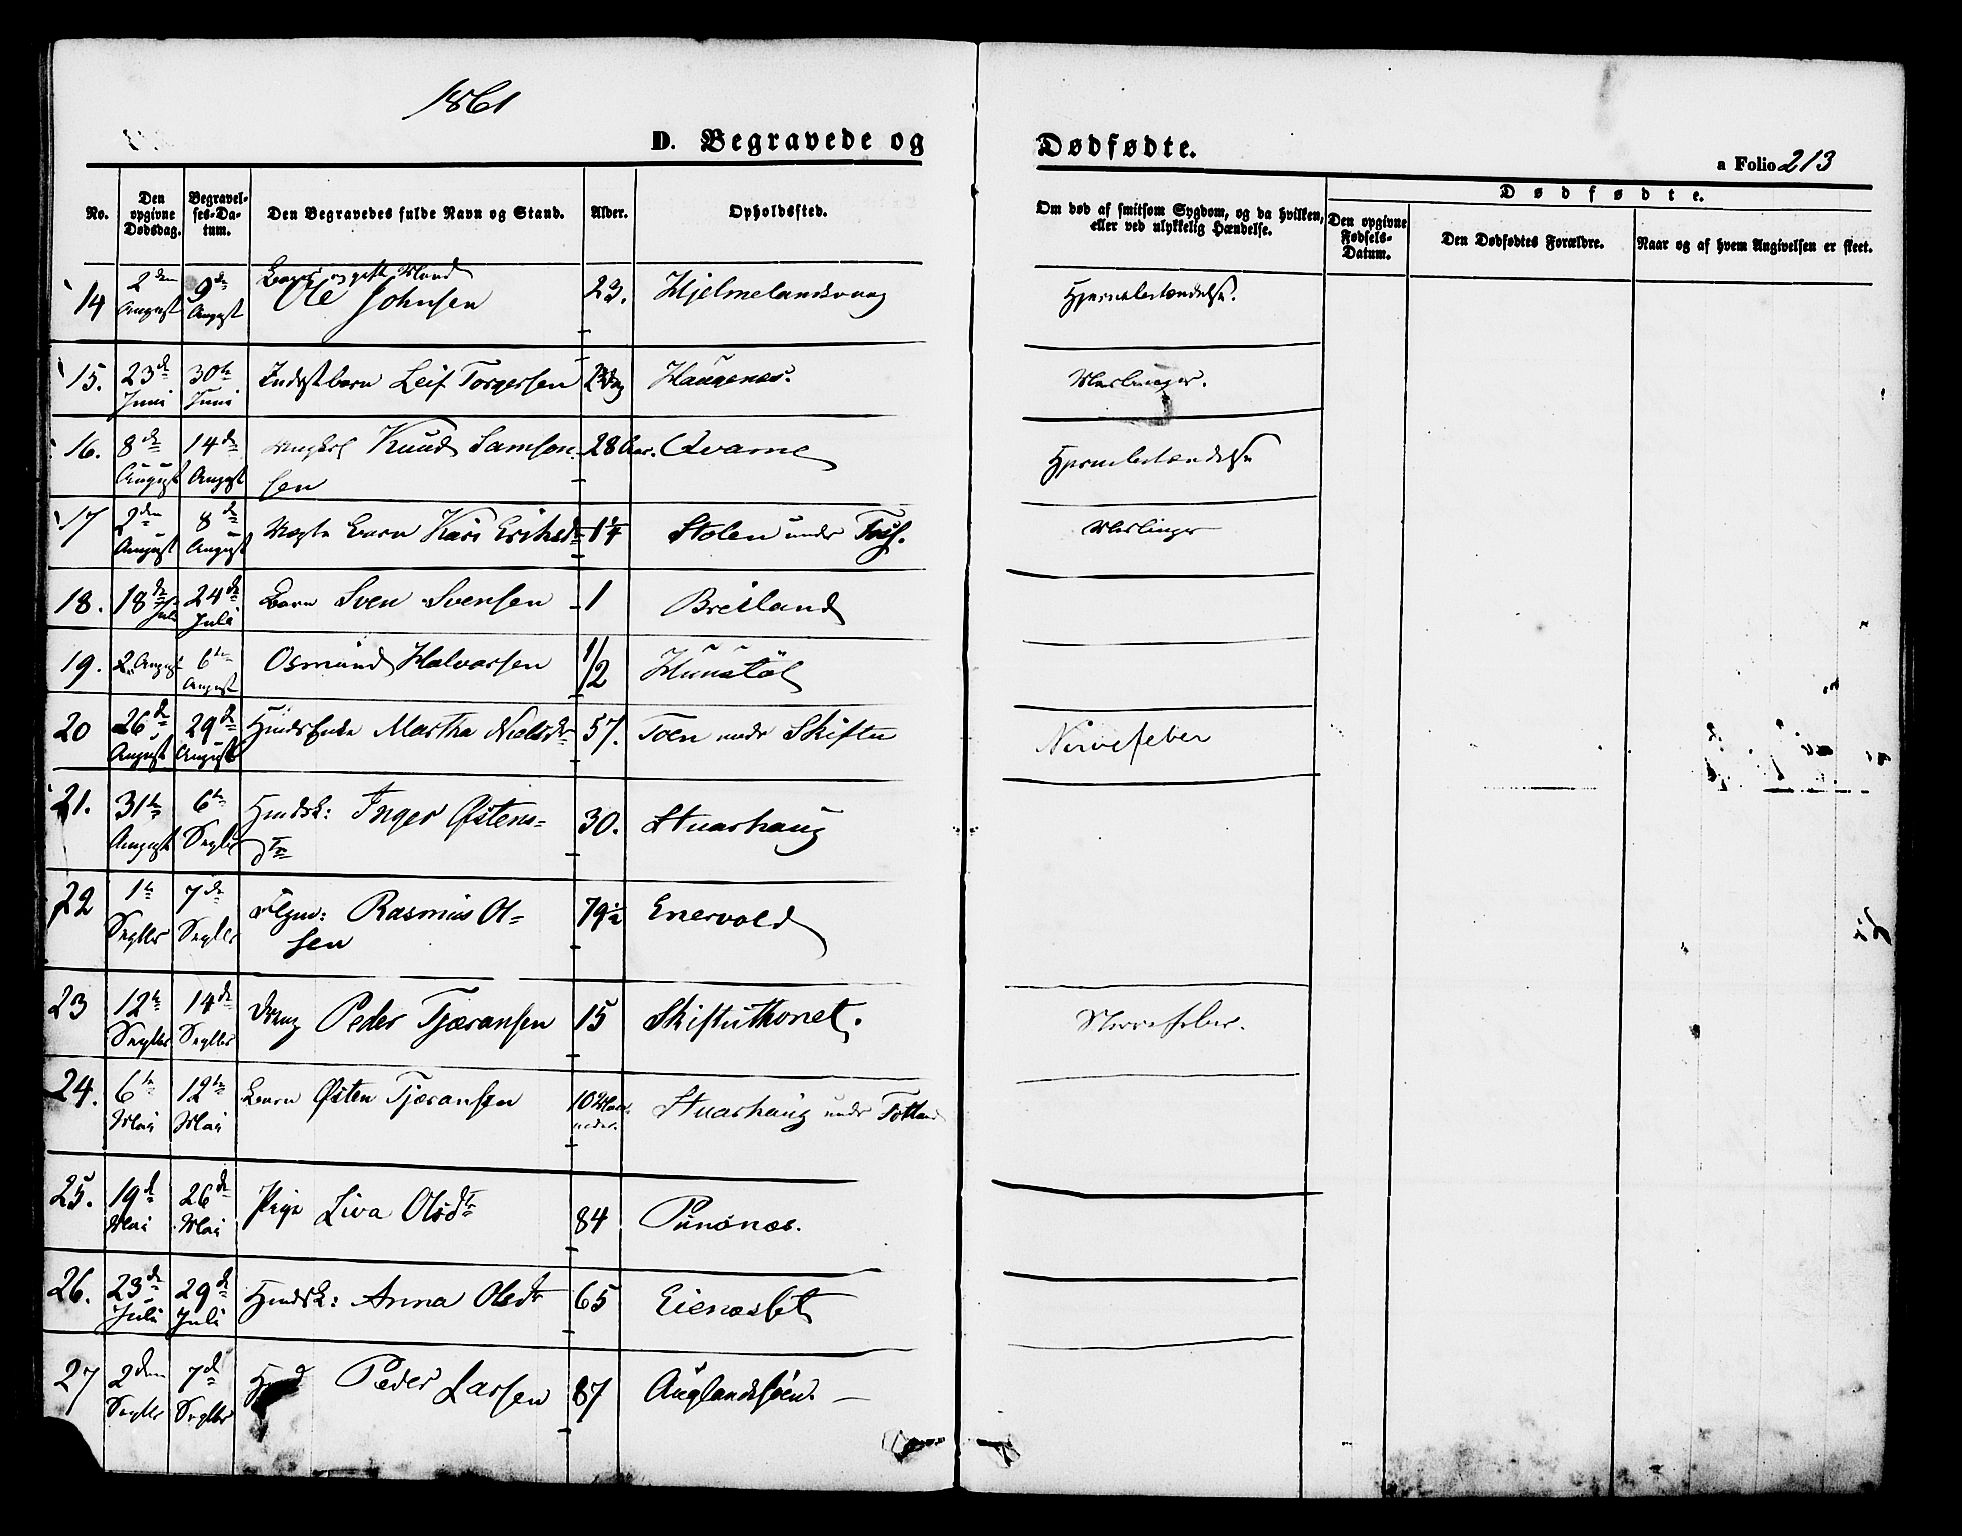 1861
D. Begravede og Dødfødte.
a Folio 213
No.
Den opgivne Dødsdag.
Begravel-ses-Da-tum.
Den Begravedes fulde Navn og Stand.
Alder.
Opholdssted.
Om død af smitsom Sygdom, og da hvilken, eller ved ulykkelig Hændelse.
Dødfødte.
Den opgivne Fødsels-Datum.
Den Dødfødtes Forældre.
Naar og af hvem Angivelsen er skeet.
14 2den August 9de August Ole Johnsen 23. Hjelmelandsvaag Hjernebetændelse.
15. 23de Juni 30te Juni Indestbarn Leif Torgersen Haugenæs. Meslinger.
16. 8de August 14de August Ungkrl Knud Samson-
sen 28 Aar. Qvame Hjernebetændelse
17 2den August 8de August Barn Kari Eriksdr 1 1/4 Stolen under Meslinger
18. 18de Juli 24de Juli Barn Sven Svensen 1 Breiland
19. 2 August 6te August Osmund Halvorsen 1/2
20 26de August 29de August Huuds Enke Martha Nielsdr 57. Toen under Skiftu Nervefeber
21. 31te August 6te Septbr Huusk: Inger Østens-
dtr 30. Stuarhaug
22 1te Septbr 7de Septbr Rasmus Ol-
sen 79 1/2 Enervold
23 12te Septbr 14de Septbr Dreng Peder Tjæransen 15 Skiftuthonet. Nervefeber.
24. 6te Mai 12te Mai Barn Østen Tjæransen 10 Maa-
neder. Stuarhaug under Fotland
25. 19de Mai 26de Mai Pige Liva Olsdtr 84 Punsnæs.
26. 23de Juli 29de Juli Huusk: Anna Olsdtr 65 Eienæsbet
27 2den Septbr 7de Septbr Peder Larsen 87 Auglandsøen. —